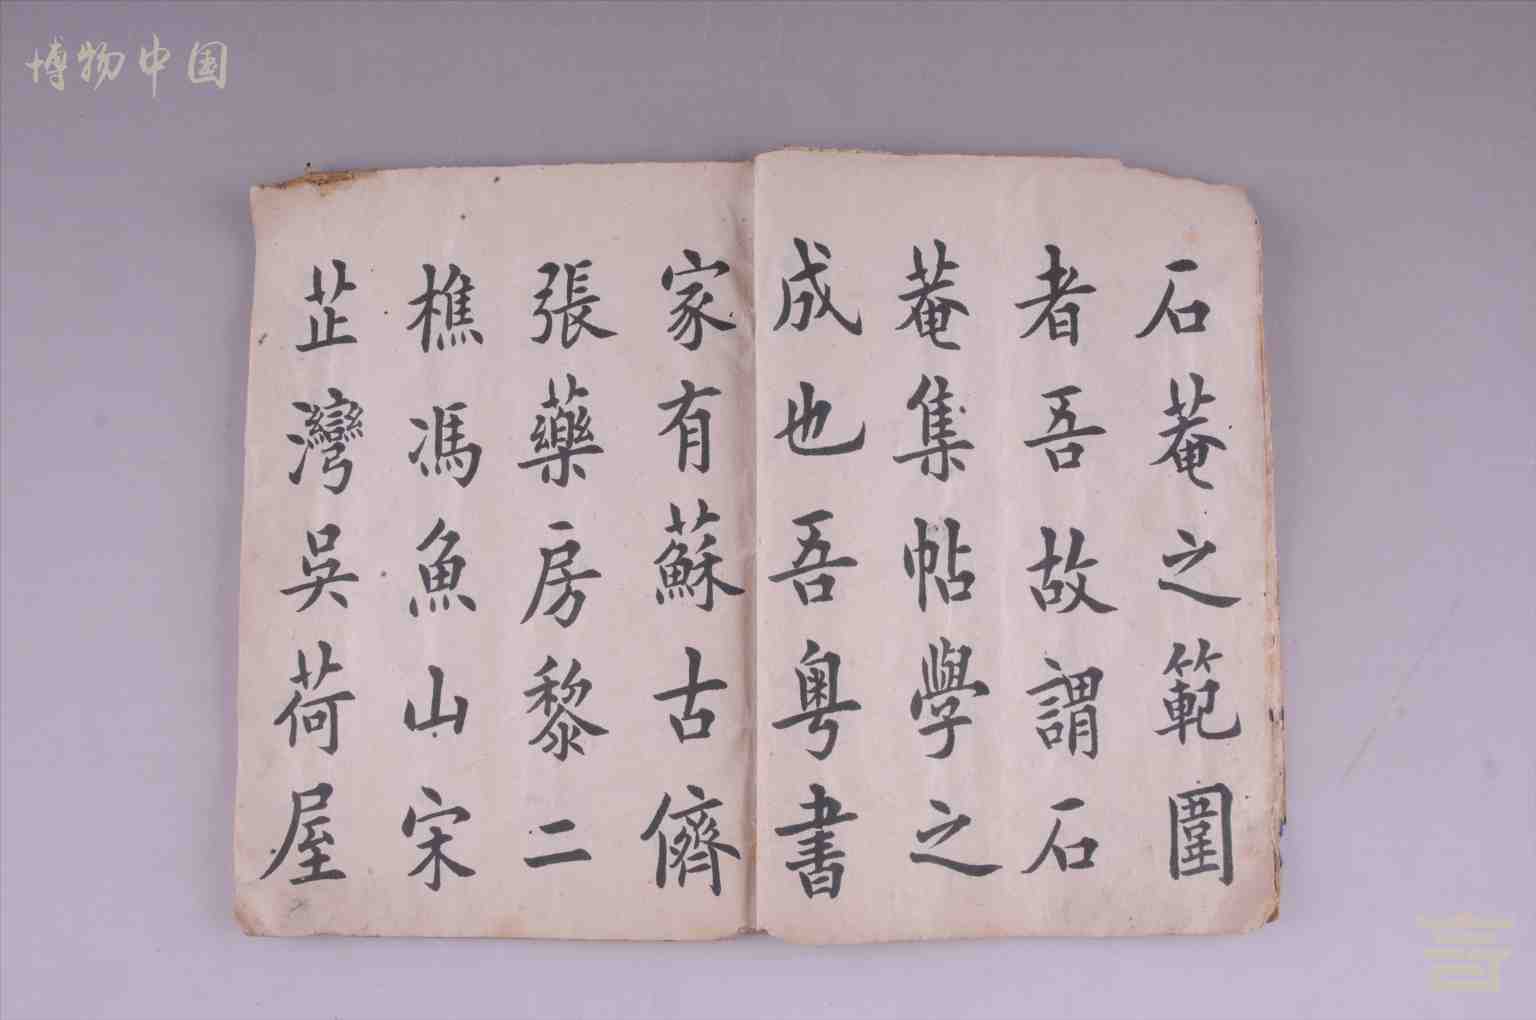 博物中国
石菴之範圍
者吾故謂石
菴集帖學之
成也吾粵書
家有蘇古儕
張藥房黎二
樵馮魚山宋
芷灣吳荷屋